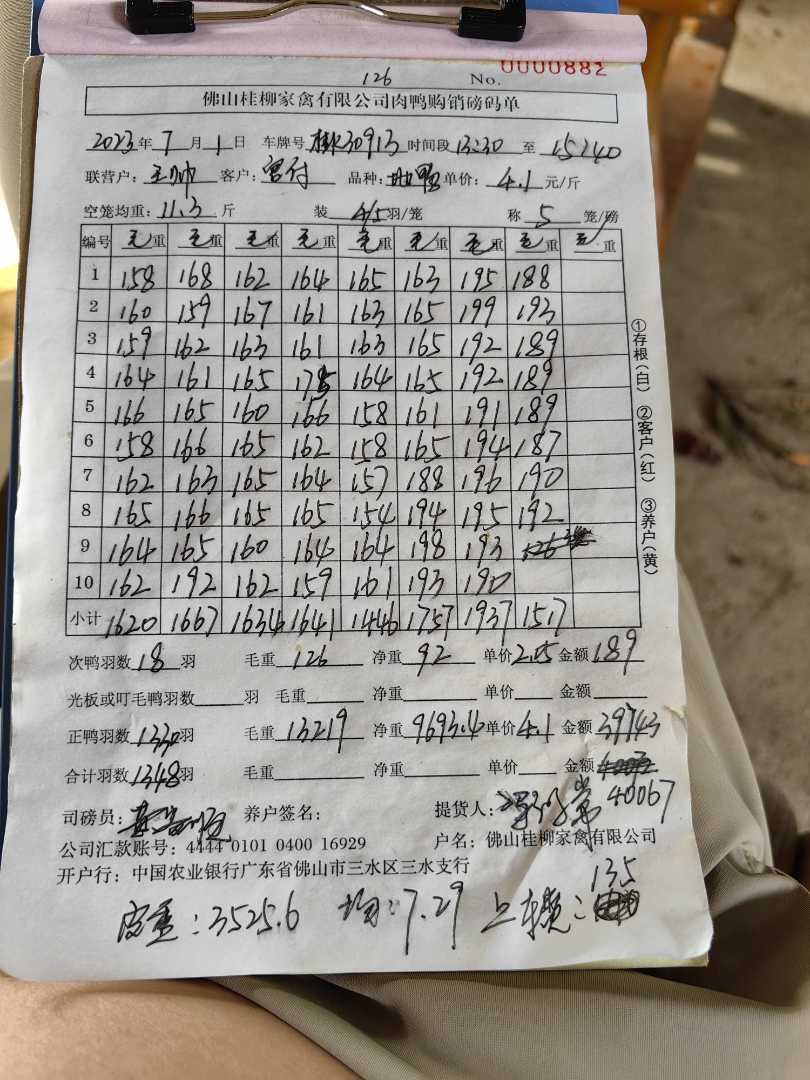 126 No. 0000882
佛山桂柳家禽有限公司肉鸭购销磅码单
2023年7月1日 车牌号 30913 时间段 13:30 至 15:40
联营户: 王帅 客户: 宫付 品种: 单价: 4.1 元/斤
空笼均重: 11.3 斤 装 4/5 羽/笼 称 5 笼/磅
编号 毛重 毛重 毛重 毛重 毛重 毛重 毛重 毛重 毛重
1 158 168 162 164 165 163 195 188
2 160 159 167 161 163 165 199 193
3 159 162 163 161 163 165 192 189
4 164 161 165 175 164 165 192 189
5 166 165 160 166 158 161 191 189
6 158 166 165 162 158 165 194 187
7 162 163 165 164 157 188 196 190
8 165 166 165 165 154 194 195 192
9 164 165 160 164 164 198 193
10 162 192 162 159 161 193 190
小计 1620 1667 1634 1641 1446 1757 1937 1517
次鸭羽数 18 羽 毛重 126 净重 92 单价 2.05 金额 189
光板或叮毛鸭羽数 羽 毛重 净重 单价 金额
正鸭羽数 1330 羽 毛重 13219 净重 9693.4 单价 4.1 金额 39743
合计羽数 1348 羽 毛重 净重 单价 金额
40067
司磅员: 养户签名: 提货人:
公司汇款账号: 4444 0101 0400 16929 户名: 佛山桂柳家禽有限公司
开户行: 中国农业银行广东省佛山市三水区三水支行
皮重: 3525.6 均: 7.29 上车费: 135
①存根(白) ②客户(红) ③养户(黄)